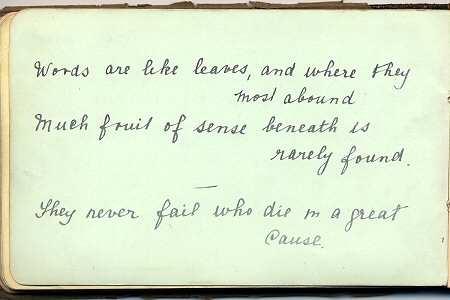 Words are like leaves, and where they
most abound
Much fruit of sense beneath is
rarely found.
They never fail who die in a great
Cause.